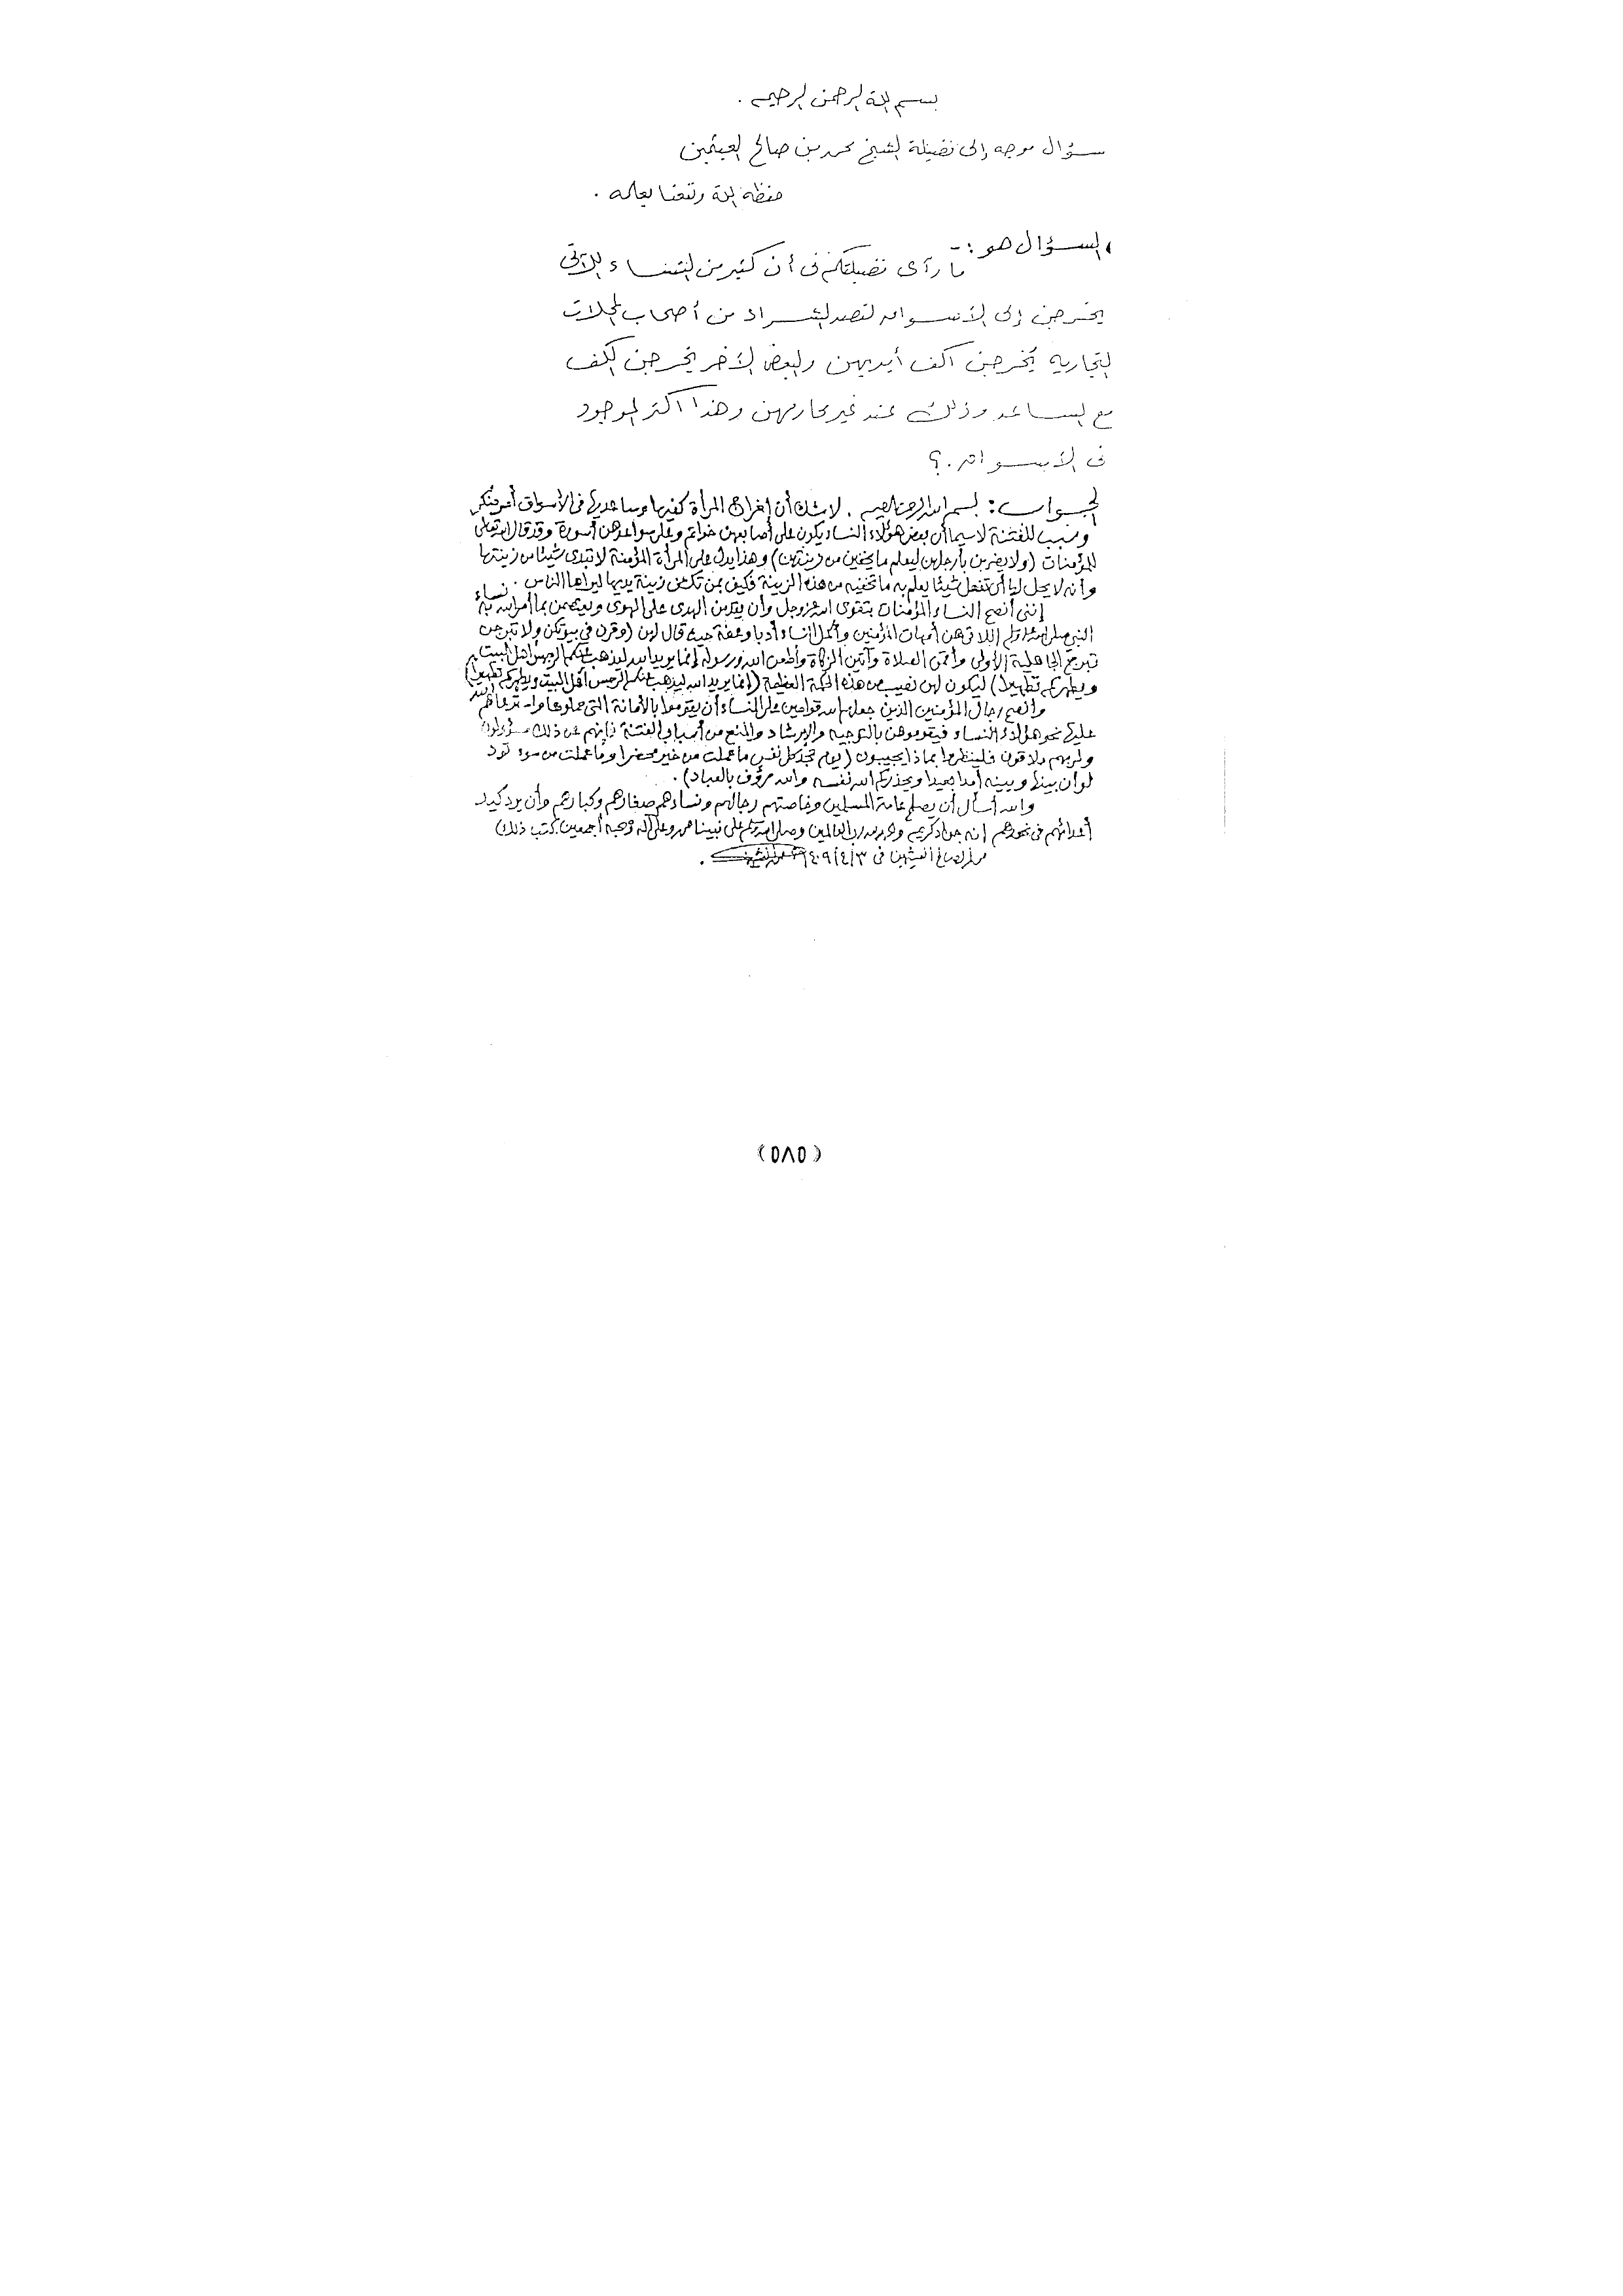 بسم الله الرحمن الرحيم .
سؤال موجه إلى فضيلة الشيخ محمد بن صالح العثيمين
حفظه الله ونفعنا بعلمه .
السؤال هو :-
ما رأى فضيلتكم فى أن كثير من النساء اللآتى
يخرجن إلى الأسواق لقصد الشراء من أصحاب المحلات
التجاريه يخرجن اكف أيديهن والبعض الآخر يخرجن الكف
مع الساعد وذلك عند غير محارمهن وهذا اكثر الموجود
فى الأسواق . ؟
الجواب : بسم الله الرحمن الرحيم . لا شك أن إخراج المرأة كفيها وساعديها في الأسواق أمر منكر
وسبب للفتنة لا سيما أن بعض هؤلاء النساء يكون على أصابعهن خواتم وعلى سواعدهن أسورة وقد قال الله تعالى
للمؤمنات (ولا يضربن بأرجلهن ليعلم ما يخفين من زينتهن) وهذا يدل على المرأة المؤمنة لا تبدى شيئا من زينتها
وأنه لا يحل لها أن تفعل شيئا يعلم به ما تخفيه من هذه الزينة فكيف بمن تكشف زينة يديها ليراها الناس .
إننى أنصح النساء المؤمنات بتقوى الله عز وجل وأن يقدمن الهدى على الهوى ويعتصمن بما أمر الله به نساء
النبي صلى الله عليه وسلم اللاتي هن أمهات المؤمنين وأكمل النساء أدبا وعفة حيث قال لهن (وقرن في بيوتكن ولا تبرجن
تبرج الجاهلية الأولى وأقمن الصلاة وآتين الزكاة وأطعن الله ورسوله إنما يريد الله ليذهب عنكم الرجس أهل البيت
ويطهركم تطهيرا) ليكون لهن نصيب من هذه الحكمة العظيمة (إنما يريد الله ليذهب عنكم الرجس أهل البيت ويطهركم تطهيرا)
وأنصح رجال المؤمنين الذين جعلهم الله قوامين على النساء أن يقوموا بالأمانة التي حملوها واسترعاهم الله
عليها نحو هؤلاء النساء فيقوموهن بالتوجيه والإرشاد والمنع من أسباب الفتنة فإنهم عن ذلك مسؤولون
ولربهم ملاقون فلينظروا بماذا يجيبون (يوم تجد كل نفس ما عملت من خير محضرا وما عملت من سوء تود
لو أن بينها وبينه أمدا بعيدا ويحذركم الله نفسه والله رؤوف بالعباد) .
والله أسأل أن يصلح عامة المسلمين وخاصتهم رجالهم ونساءهم صغارهم وكبارهم وأن يرد كيد
أعدائهم في نحورهم إنه جواد كريم والحمد لله رب العالمين وصلى الله وسلم على نبينا محمد وعلى آله وصحبه أجمعين كتب ذلك
محمد الصالح العثيمين في ١٤٠٩/٤/٣
(٥٨٥)